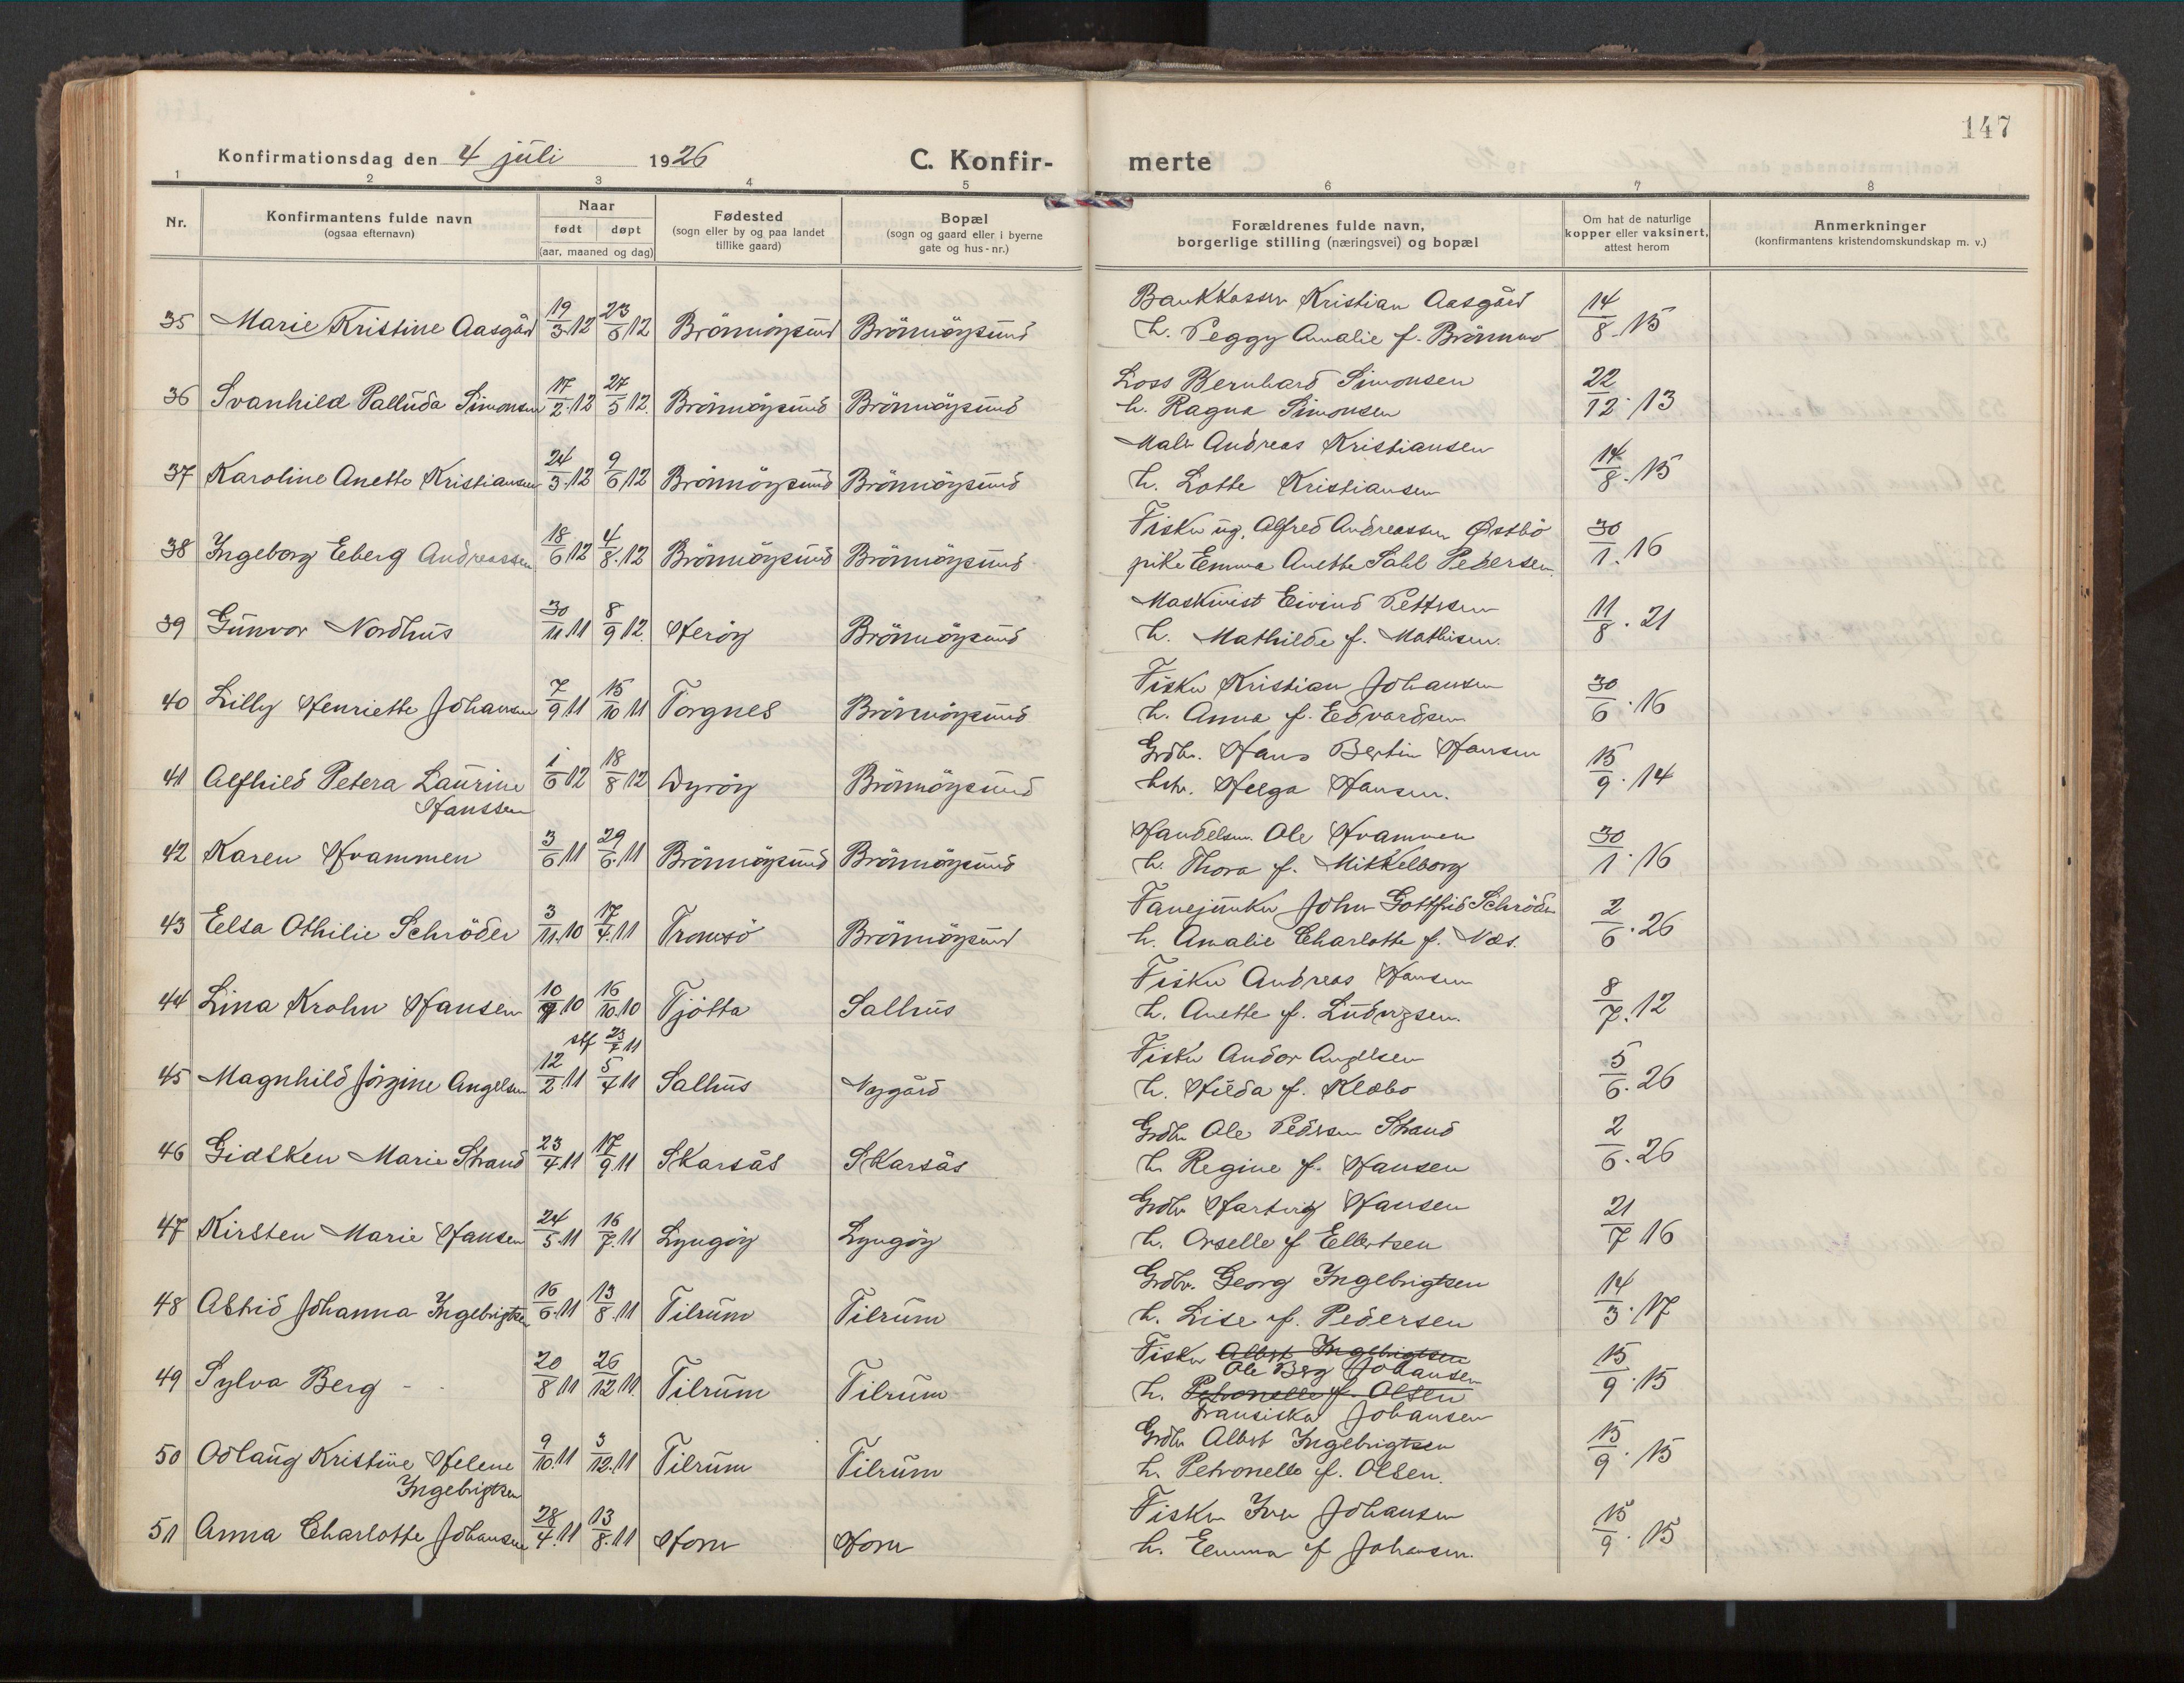 147
Konfirmationsdag den 4 juli 1926 C. Konfir- merte
1 2 3 4 5 6 7 8
Nr.
Konfirmantens fulde navn
(ogsaa efternavn)
Naar
født døpt
(aar, maaned og dag)
Fødested
(sogn eller by og paa landet
tillike gaard)
Bopæl
(sogn og gaard eller i byerne
gate og hus-nr.)
Forældrenes fulde navn,
borgerlige stilling (næringsvei) og bopæl
Om hat de naturlige
kopper eller vaksinert,
attest herom
Anmerkninger
(konfirmantens kristendomskundskap m. v.)
35 Marie Kristine Aasgård 19/3.12 23/6.12 Brönnöysund Brönnöysund Bankkasser Kristian Aasgård 14/8.15
h. Peggy Amalie f. Brönmo
36 Svanhild Palluda Simonsen 17/2.12 27/5.12. Brönnöysund Brönnöysund Loss Bernhard Simonsen 22/12.13
h. Ragna Simonsen
37 Karoline Anette Kristiansen 24/3.12 9/6.12 Brönnöysund Brönnöysund Maler Andreas Kristiansen 14/8.15
h. Lotte Kristiansen
38 Ingeborg Eberg Andreassen 18/6.12 4/8.12 Brönnöysund Brönnöysund Fisker ug. Alfred Andreassen Østbö 30/1.16
pike Emma Anette Sahl Pedersen.
39 Gunvor Nordhus 30/11.11 8/9.12. Heröy Brönnöysund Maskinist Eivind Pettersen 11/8.21
h. Mathilde f. Mathisen.
40 Lilly Henriette Johansen 7/9.11 15/10.11 Torgnes Brönnöysund Fisker Kristian Johansen 30/6.16
h. Anna f. Edvardsen
41 Alfhild Petera Laurine 1/6.12 18/8.12 Dyröy Brönnöysund Grdbr. Hans Bertin Hansen 15/9.14
Hanssen hstr. Helga Hansen.
42 Karen Hvammen 3/6.11 29/6.11 Brönnöysund Brönnöysund Handelsm. Ole Hvammen 30/1.16
h. Thora f. Mikkelborg
43 Elsa Othilie Schröder 3/11.10 17/4.11 Tromsö Brönnöysund Fanejunker John Gottfrid Schröder 2/6.26
h. Amalie Charlotte f. Næs.
44 Lina Krohn Hansen 10/9.10 16/10.10 Tjötta Salhus Fisker Andreas Hansen 8/7.12
h. Anette f. Ludvigsen.
stf 23/7.11
45 Magnhild Jörgine Angelsen 12/2.11 5/4.11 Salhus Nygård Fisker Andor Angelsen 5/6.26
h. Hilda f. Klæbo
46 Gidsken Marie Strand 23/4.11 17/9.11 Skarsås Skarsås Grdbr Ole Pedersen Strand 2/6.26
h. Regine f. Hansen
47 Kirsten Marie Hansen 24/5.11 16/7.11 Lyngöy Lyngöy Grdbr Hartvig Hansen 21/7 16
h. Orselle f Ellertsen
48 Astrid Johanna Ingebrigtsen 16/6.11 13/8.11 Tilrum Tilrum Grdbr. Georg Ingebrigtsen 14/3.17
h. Lise f. Pedersen
49 Sylva Berg 20/8 11 26/12 11. Tilrum Tilrum Fisker Albert Ingebrigtsen 15/9.15
Ole Berg Johansen
h. Petronelle f. Olsen
Fransiska Johansen
50 Odlaug Kristine Helene 9/10.11 3/12.11 Tilrum Tilrum Grdbr Albert Ingebrigtsen 15/9.15
Ingebrigtsen h. Petronelle f. Olsen.
51 Anna Charlotte Johansen 28/4.11 13/8.11 Horn Horn Fisker Iver Johansen 15/9.15
h. Emma f Johansen.